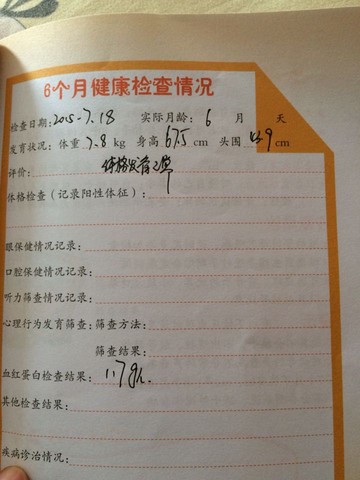 6个月健康检查情况
检查日期:2015-7.18 实际月龄: 6 月 天
发育状况: 体重 7.8 kg 身高 67.5 cm 头围 43.9 cm
评价: 体格发育正常
体格检查(记录阳性体征):
眼保健情况记录:
口腔保健情况记录:
听力筛查情况记录:
心理行为发育筛查: 筛查方法:
筛查结果:
血红蛋白检查结果: 117g/L
其他检查结果:
疾病诊治情况: